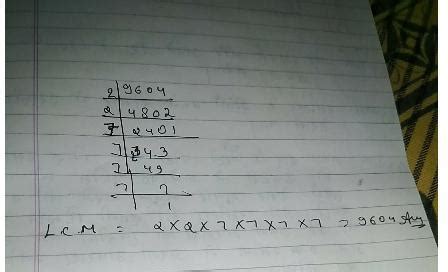 2 9604
2 4802
7 2401
7 343
7 49
7 7
1
LCM = 2×2×7×7×7×7 = 9604 Ans